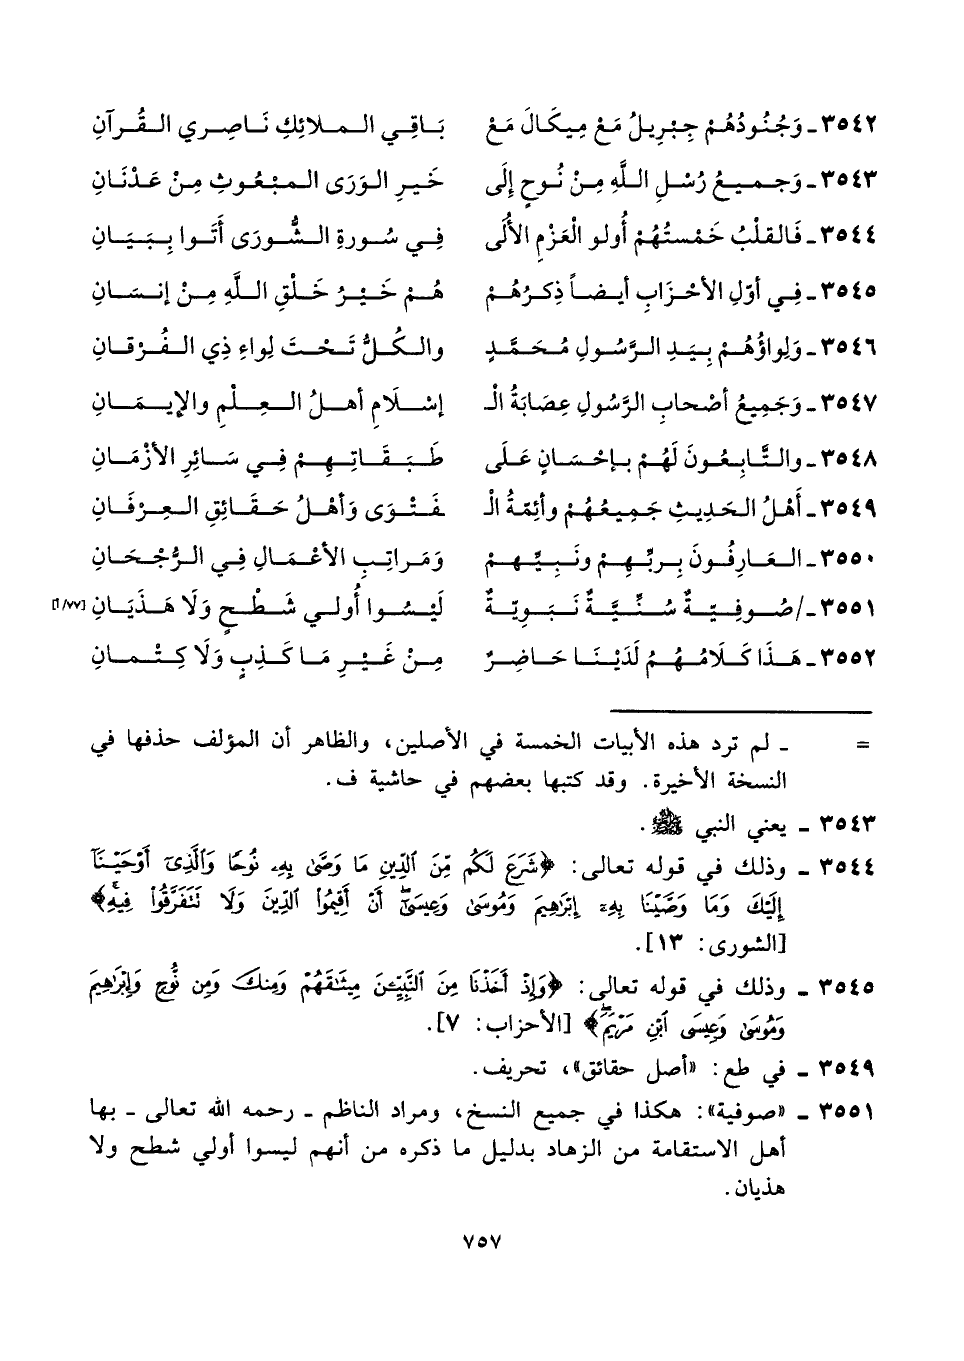 ٣٥٤٢ - وَجُنُودُهُمْ جِبْرِيلُ مَعْ مِيكَالَ مَعْ بَاقِي الملائِكِ نَاصِرِي القُرآنِ
٣٥٤٣ - وَجميعُ رُسْلِ اللَّهِ مِنْ نُوحٍ إلَى خَيرِ الوَرَى المبْعُوثِ مِنْ عَدْنَانِ
٣٥٤٤ - فَالقلْبُ خَمْستُهُمْ أُولو الْعَزْمِ الأُلَى فِي سُورةِ الشُّورَى أَتَوا بِبَيَانِ
٣٥٤٥ - فِي أوّلِ الأحْزَابِ أيضاً ذِكرُهُمْ هُمْ خَيْرُ خَلْقِ اللَّهِ مِنْ إنسَانِ
٣٥٤٦ - وَلِواؤُهُمْ بِيَدِ الرَّسُولِ مُحَمَّدٍ والكُلُّ تَحْتَ لِواءِ ذِي الفُرْقانِ
٣٥٤٧ - وَجَمِيعُ أصْحابِ الرَّسُولِ عِصَابَةُ الْـ إسْلَامِ أهلُ العِلْمِ والإيمَانِ
٣٥٤٨ - والتَّابِعُونَ لَهُمْ بإحْسَانٍ عَلَى طَبَقَاتِهِمْ فِي سَائِرِ الأزْمَانِ
٣٥٤٩ - أَهْلُ الحَدِيثِ جَمِيعُهُمْ وأئِمّةُ الْـ ـفَتْوَى وَأهْلُ حَقَائِقِ العِرْفَانِ
٣٥٥٠ - العَارِفُونَ بِربِّهِمْ ونَبِيِّهِمْ وَمَراتِبِ الأعْمَالِ فِي الرُّجْحَانِ
٣٥٥١ - /صُوفِيّةٌ سُنِّيَّةٌ نَبَوِيّةٌ لَيْسُوا أُولي شَطْحٍ وَلَا هَذَيَانِ [٧٧/أ]
٣٥٥٢ - هَذَا كَلَامُهُمُ لَدَيْنَا حَاضِرٌ مِنْ غَيْرِ مَا كَذِبٍ وَلَا كِتْمانِ
= - لم ترد هذه الأبيات الخمسة في الأصلين، والظاهر أن المؤلف حذفها في
النسخة الأخيرة. وقد كتبها بعضهم في حاشية ف.
٣٥٤٣ - يعني النبي ﷺ.
٣٥٤٤ - وذلك في قوله تعالى: ﴿شَرَعَ لَكُم مِّنَ ٱلدِّينِ مَا وَصَّىٰ بِهِۦ نُوحًا وَٱلَّذِىٓ أَوْحَيْنَآ
إِلَيْكَ وَمَا وَصَّيْنَا بِهِۦٓ إِبْرَٰهِيمَ وَمُوسَىٰ وَعِيسَىٰٓۖ أَنْ أَقِيمُوا۟ ٱلدِّينَ وَلَا تَتَفَرَّقُوا۟ فِيهِۚ﴾
[الشورى: ١٣].
٣٥٤٥ - وذلك في قوله تعالى: ﴿وَإِذْ أَخَذْنَا مِنَ ٱلنَّبِيِّـۧنَ مِيثَٰقَهُمْ وَمِنكَ وَمِن نُّوحٍ وَإِبْرَٰهِيمَ
وَمُوسَىٰ وَعِيسَى ٱبْنِ مَرْيَمَۖ﴾ [الأحزاب: ٧].
٣٥٤٩ - في طع: «أصل حقائق»، تحريف.
٣٥٥١ - «صوفية»: هكذا في جميع النسخ، ومراد الناظم - رحمه الله تعالى - بها
أهل الاستقامة من الزهاد بدليل ما ذكره من أنهم ليسوا أولي شطح ولا
هذيان.
٧٥٧